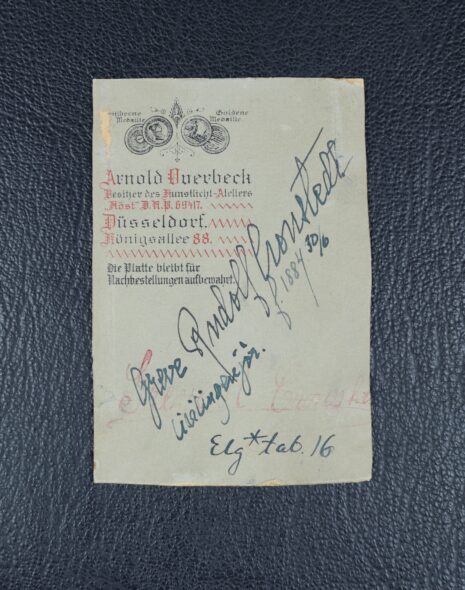 Silberne
Medaille
Goldene
Medaille
Arnold Overbeck
Besitzer des Kunstlicht-Ateliers
"Höst" D. R. P. 69417.
Düsseldorf,
Königsallee 88.
Die Platte bleibt für
Nachbestellungen aufbewahrt.
Greve Rudolf Cronstedt
civilingenjör.
f. 1884 30/6
Elg* tab. 16